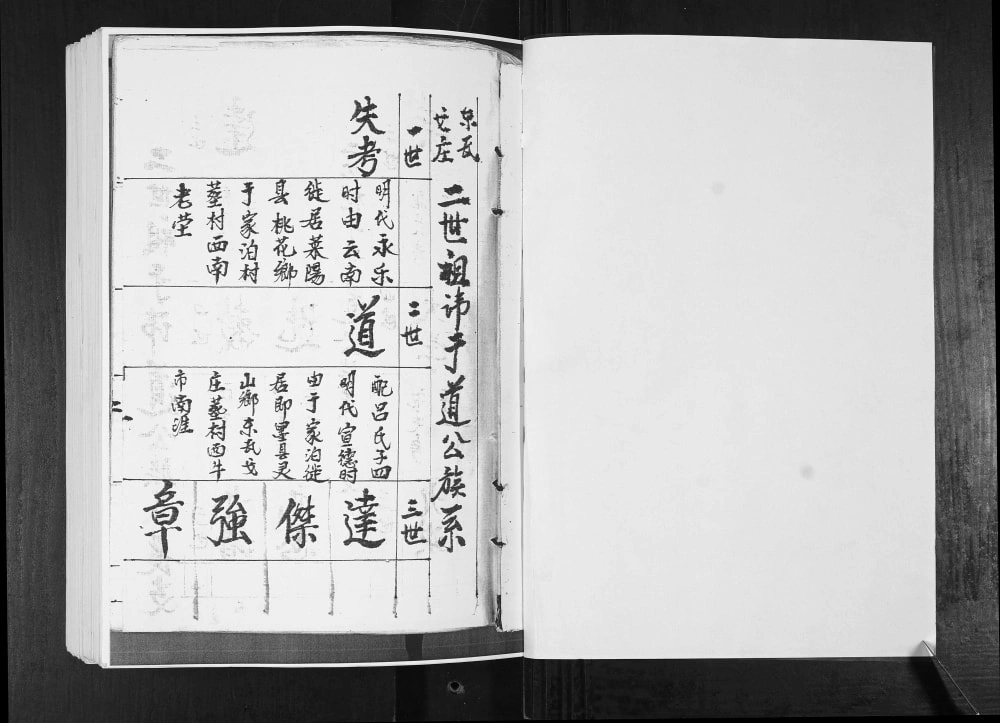 东瓦
戈庄
二世祖讳于道公族系
一世
失考
明代永乐
时由云南
徙居莱陽
县桃花鄉
于家泊村
塟村西南
老茔
二世
道
配吕氏子四
明代宣德时
由于家泊徙
居即墨县灵
山鄉东瓦戈
庄塟村西牛
市南涯
三世
達
傑
強
章
二